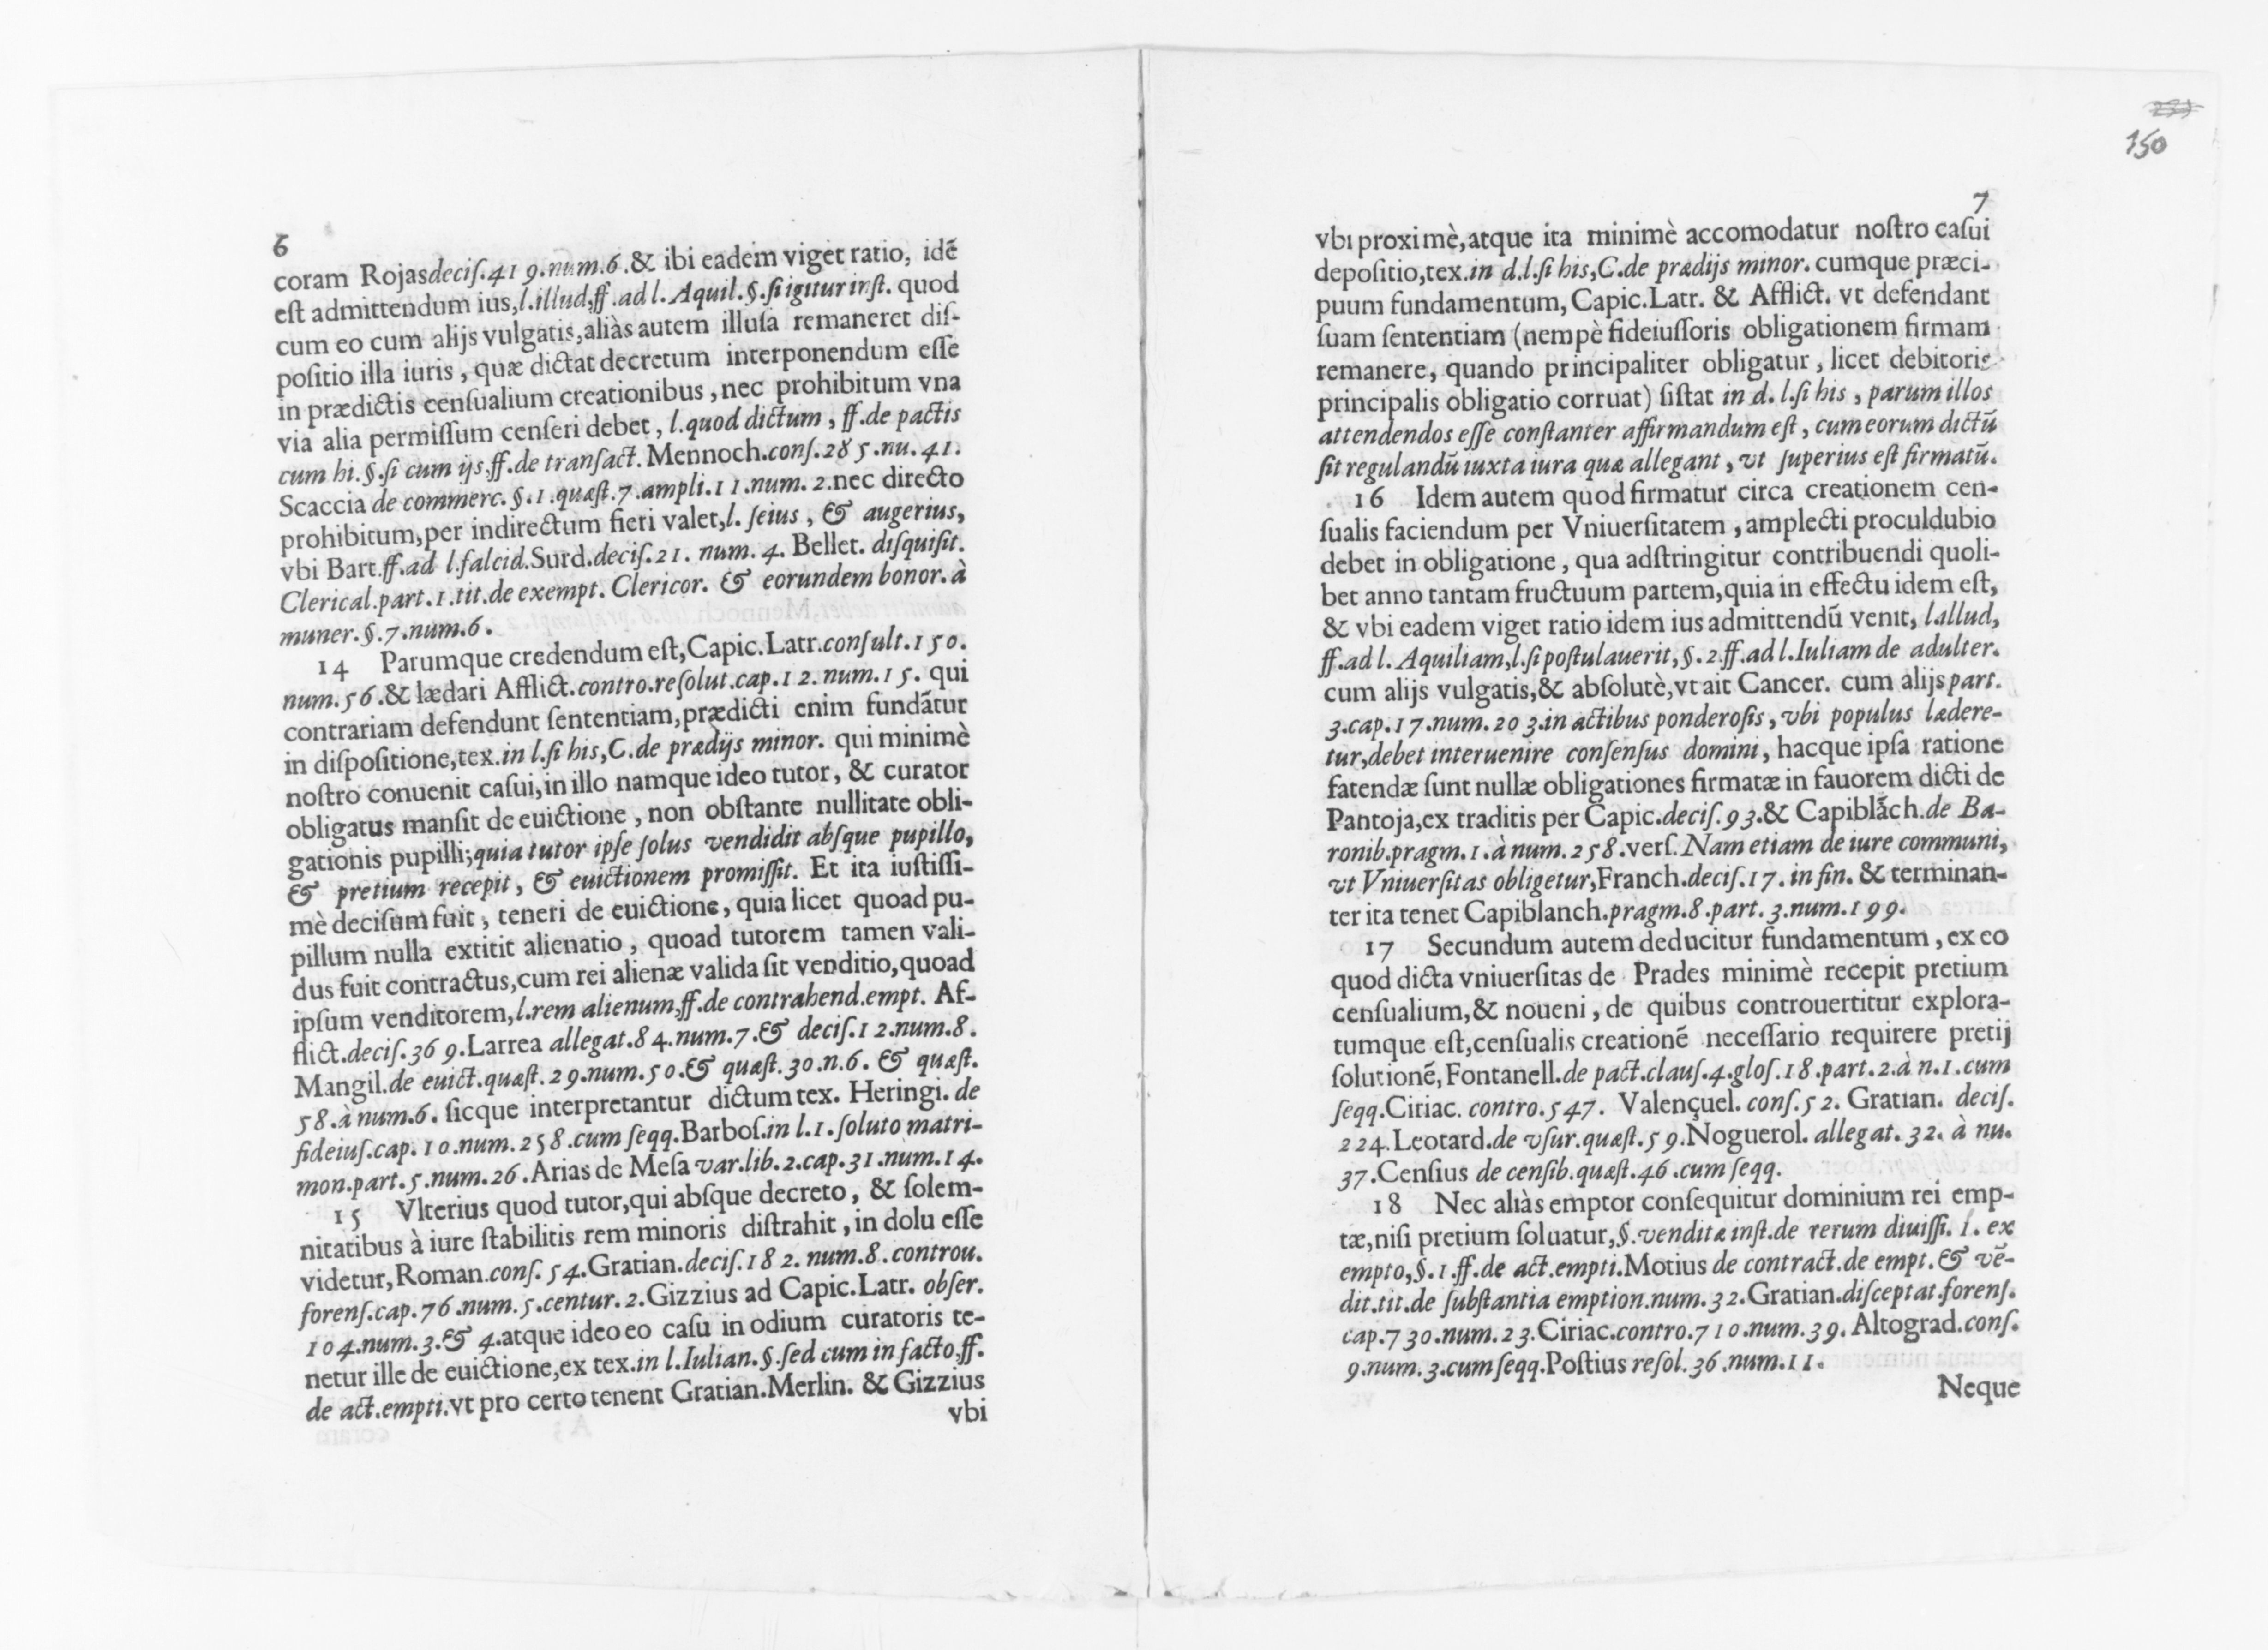 6
coram Rojas decis.419.num.6.& ibi eadem viget ratio, idẽ
est admittendum ius,l.illud,ff.ad l.Aquil.§.si igitur inst. quod
cum eo cum alijs vulgatis,aliàs autem illusa remaneret dis-
positio illa iuris, quæ dictat decretum interponendum esse
in prædictis censualium creationibus, nec prohibitum vna
via alia permissum censeri debet, l.quod dictum, ff.de pactis
cum hi.§.si cum ijs,ff.de transact. Mennoch.cons.285.nu.41.
Scaccia de commerc.§.1.quæst.7.ampli.11.num.2.nec directo
prohibitum,per indirectum fieri valet,l. seius, & augerius,
vbi Bart.ff.ad l.falcid.Surd.decis.21. num.4. Bellet. disquisit.
Clerical.part.1.tit.de exempt. Clericor. & eorundem bonor. à
muner.§.7.num.6.
14 Parumque credendum est,Capic.Latr.consult.150.
num.56.& lædari Afflict.contro.resolut.cap.12.num.15. qui
contrariam defendunt sententiam,prædicti enim fundãtur
in dispositione,tex.in l.si his,C.de prædijs minor. qui minimè
nostro conuenit casui,in illo namque ideo tutor, & curator
obligatus mansit de euictione, non obstante nullitate obli-
gationis pupilli;quia tutor ipse solus vendidit absque pupillo,
& pretium recepit, & euictionem promissit. Et ita iustissi-
mè decisum fuit, teneri de euictione, quia licet quoad pu-
pillum nulla extitit alienatio, quoad tutorem tamen vali-
dus fuit contractus,cum rei alienæ valida sit venditio,quoad
ipsum venditorem,l.rem alienum,ff.de contrahend.empt. Af-
flict.decis.369.Larrea allegat.84.num.7.& decis.12.num.8.
Mangil.de euict.quæst.29.num.50.& quæst.30.n.6. & quæst.
58.à num.6. sicque interpretantur dictum tex. Heringi. de
fideius.cap.10.num.258.cum seqq.Barbos.in l.1.soluto matri-
mon.part.5.num.26.Arias de Mesa var.lib.2.cap.31.num.14.
15 Vlterius quod tutor,qui absque decreto, & solem-
nitatibus à iure stabilitis rem minoris distrahit, in dolu esse
videtur,Roman.cons.54.Gratian.decis.182.num.8.controu.
forens.cap.76.num.5.centur.2.Gizzius ad Capic.Latr. obser.
104.num.3.& 4.atque ideo eo casu in odium curatoris te-
netur ille de euictione,ex tex.in l.Iulian.§.sed cum in facto,ff.
de act.empti.vt pro certo tenent Gratian.Merlin. & Gizzius
vbi
150
7
vbi proximè,atque ita minimè accomodatur nostro casui
depositio,tex.in d.l.si his,C.de prædijs minor. cumque præci-
puum fundamentum, Capic.Latr. & Afflict. vt defendant
suam sententiam (nempè fideiussoris obligationem firmam
remanere, quando principaliter obligatur, licet debitoris
principalis obligatio corruat) sistat in d. l.si his, parum illos
attendendos esse constanter affirmandum est, cum eorum dictũ
sit regulandũ iuxta iura quæ allegant, vt superius est firmatũ.
16 Idem autem quod firmatur circa creationem cen-
sualis faciendum per Vniuersitatem, amplecti proculdubio
debet in obligatione, qua adstringitur contribuendi quoli-
bet anno tantam fructuum partem,quia in effectu idem est,
& vbi eadem viget ratio idem ius admittendũ venit, l.allud,
ff.ad l. Aquiliam,l.si postulauerit,§.2.ff.ad l.Iuliam de adulter.
cum alijs vulgatis,& absolutè,vt ait Cancer. cum alijs part.
3.cap.17.num.203.in actibus ponderosis, vbi populus lædere-
tur,debet interuenire consensus domini, hacque ipsa ratione
fatendæ sunt nullæ obligationes firmatæ in fauorem dicti de
Pantoja,ex traditis per Capic.decis.93.& Capiblãch.de Ba-
ronib.pragm.1.à num.258.vers.Nam etiam de iure communi,
vt Vniuersitas obligetur,Franch.decis.17. in fin. & terminan-
ter ita tenet Capiblanch.pragm.8.part.3.num.199.
17 Secundum autem deducitur fundamentum, ex eo
quod dicta vniuersitas de Prades minimè recepit pretium
censualium,& noueni, de quibus controuertitur explora-
tumque est,censualis creationẽ necessario requirere pretij
solutionẽ, Fontanell.de pact.claus.4.glos.18.part.2.à n.1.cum
seqq.Ciriac. contro.547. Valençuel. cons.52. Gratian. decis.
224.Leotard.de vsur.quæst.59.Noguerol. allegat. 32. à nu.
37.Censius de censib.quæst.46.cum seqq.
18 Nec aliàs emptor consequitur dominium rei emp-
tæ,nisi pretium soluatur,§.venditæ inst.de rerum diuissi. l. ex
empto,§.1.ff.de act.empti.Motius de contract.de empt.& vẽ-
dit.tit.de substantia emption.num.32.Gratian.disceptat.forens.
cap.730.num.23.Ciriac.contro.710.num.39. Altograd.cons.
9.num.3.cum seqq.Postius resol.36.num.11.
Neque